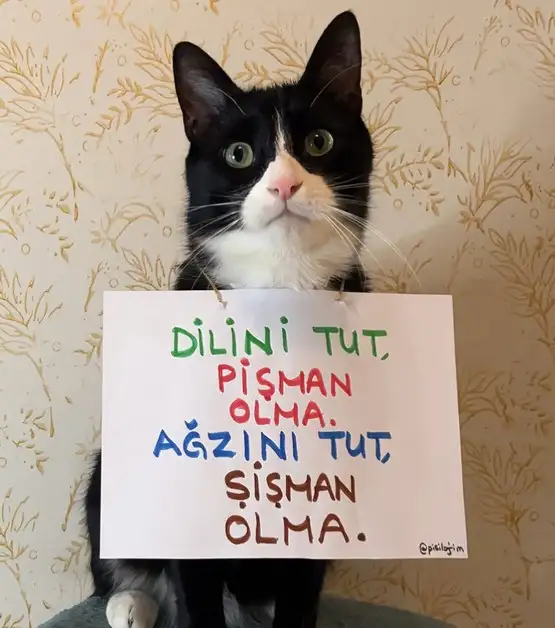 DİLİNİ TUT,
PİŞMAN
OLMA.
AĞZINI TUT,
ŞİŞMAN
OLMA.
@pisiloji̇m